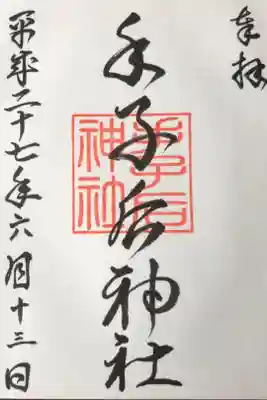 奉拝
手子后神社
手子后神社
平成二十七年六月十三日